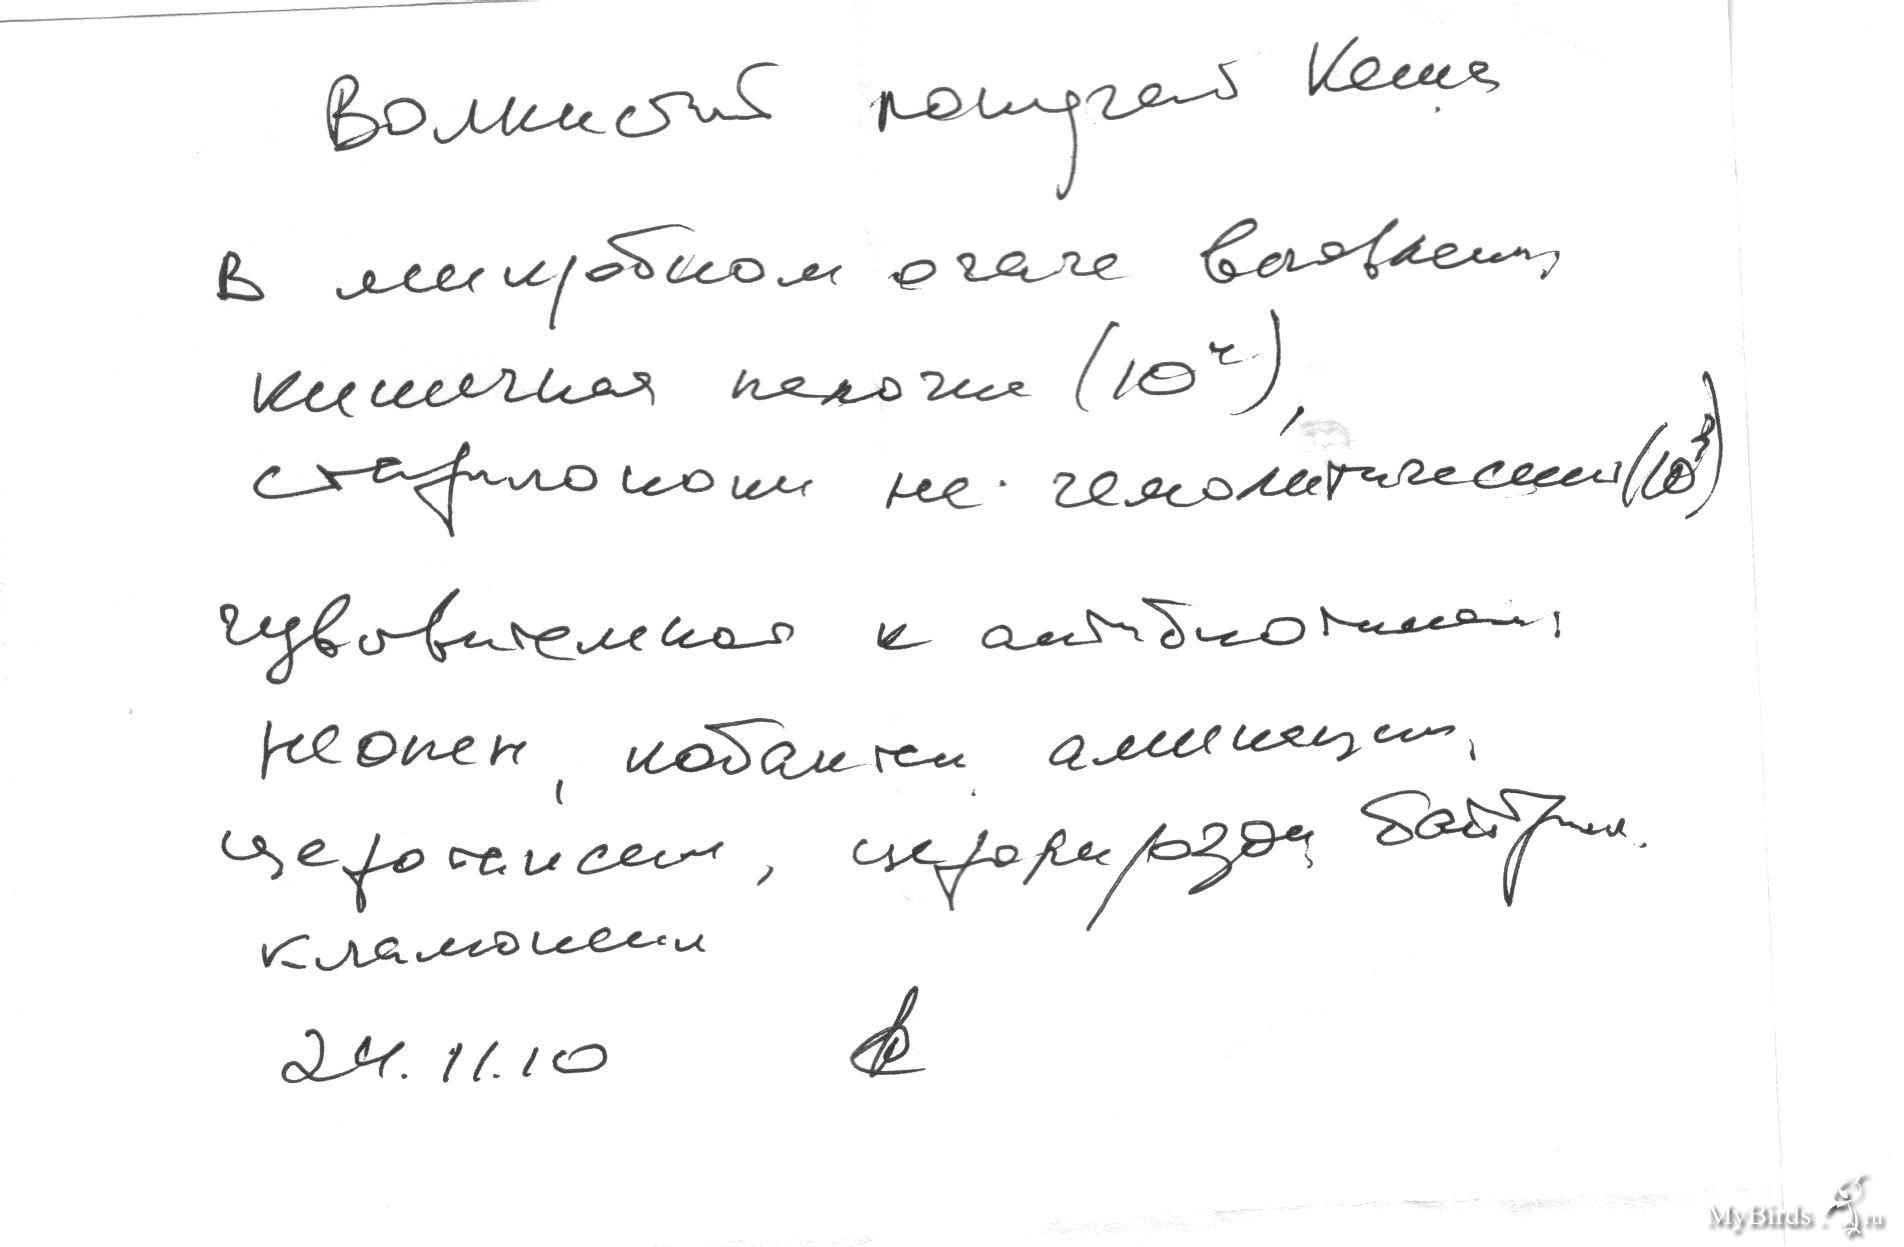 Волнистый попугай Кеша
В микробном очаге выявлены
кишечная палочка (10⁴),
стафилококки не гемолитический (10³)
чувствительная к антибиотикам
неопен, кобактан амикацин,
цефотаксим, цефпиразон, байтрил.
кламоксил
24.11.10
MyBirds.ru